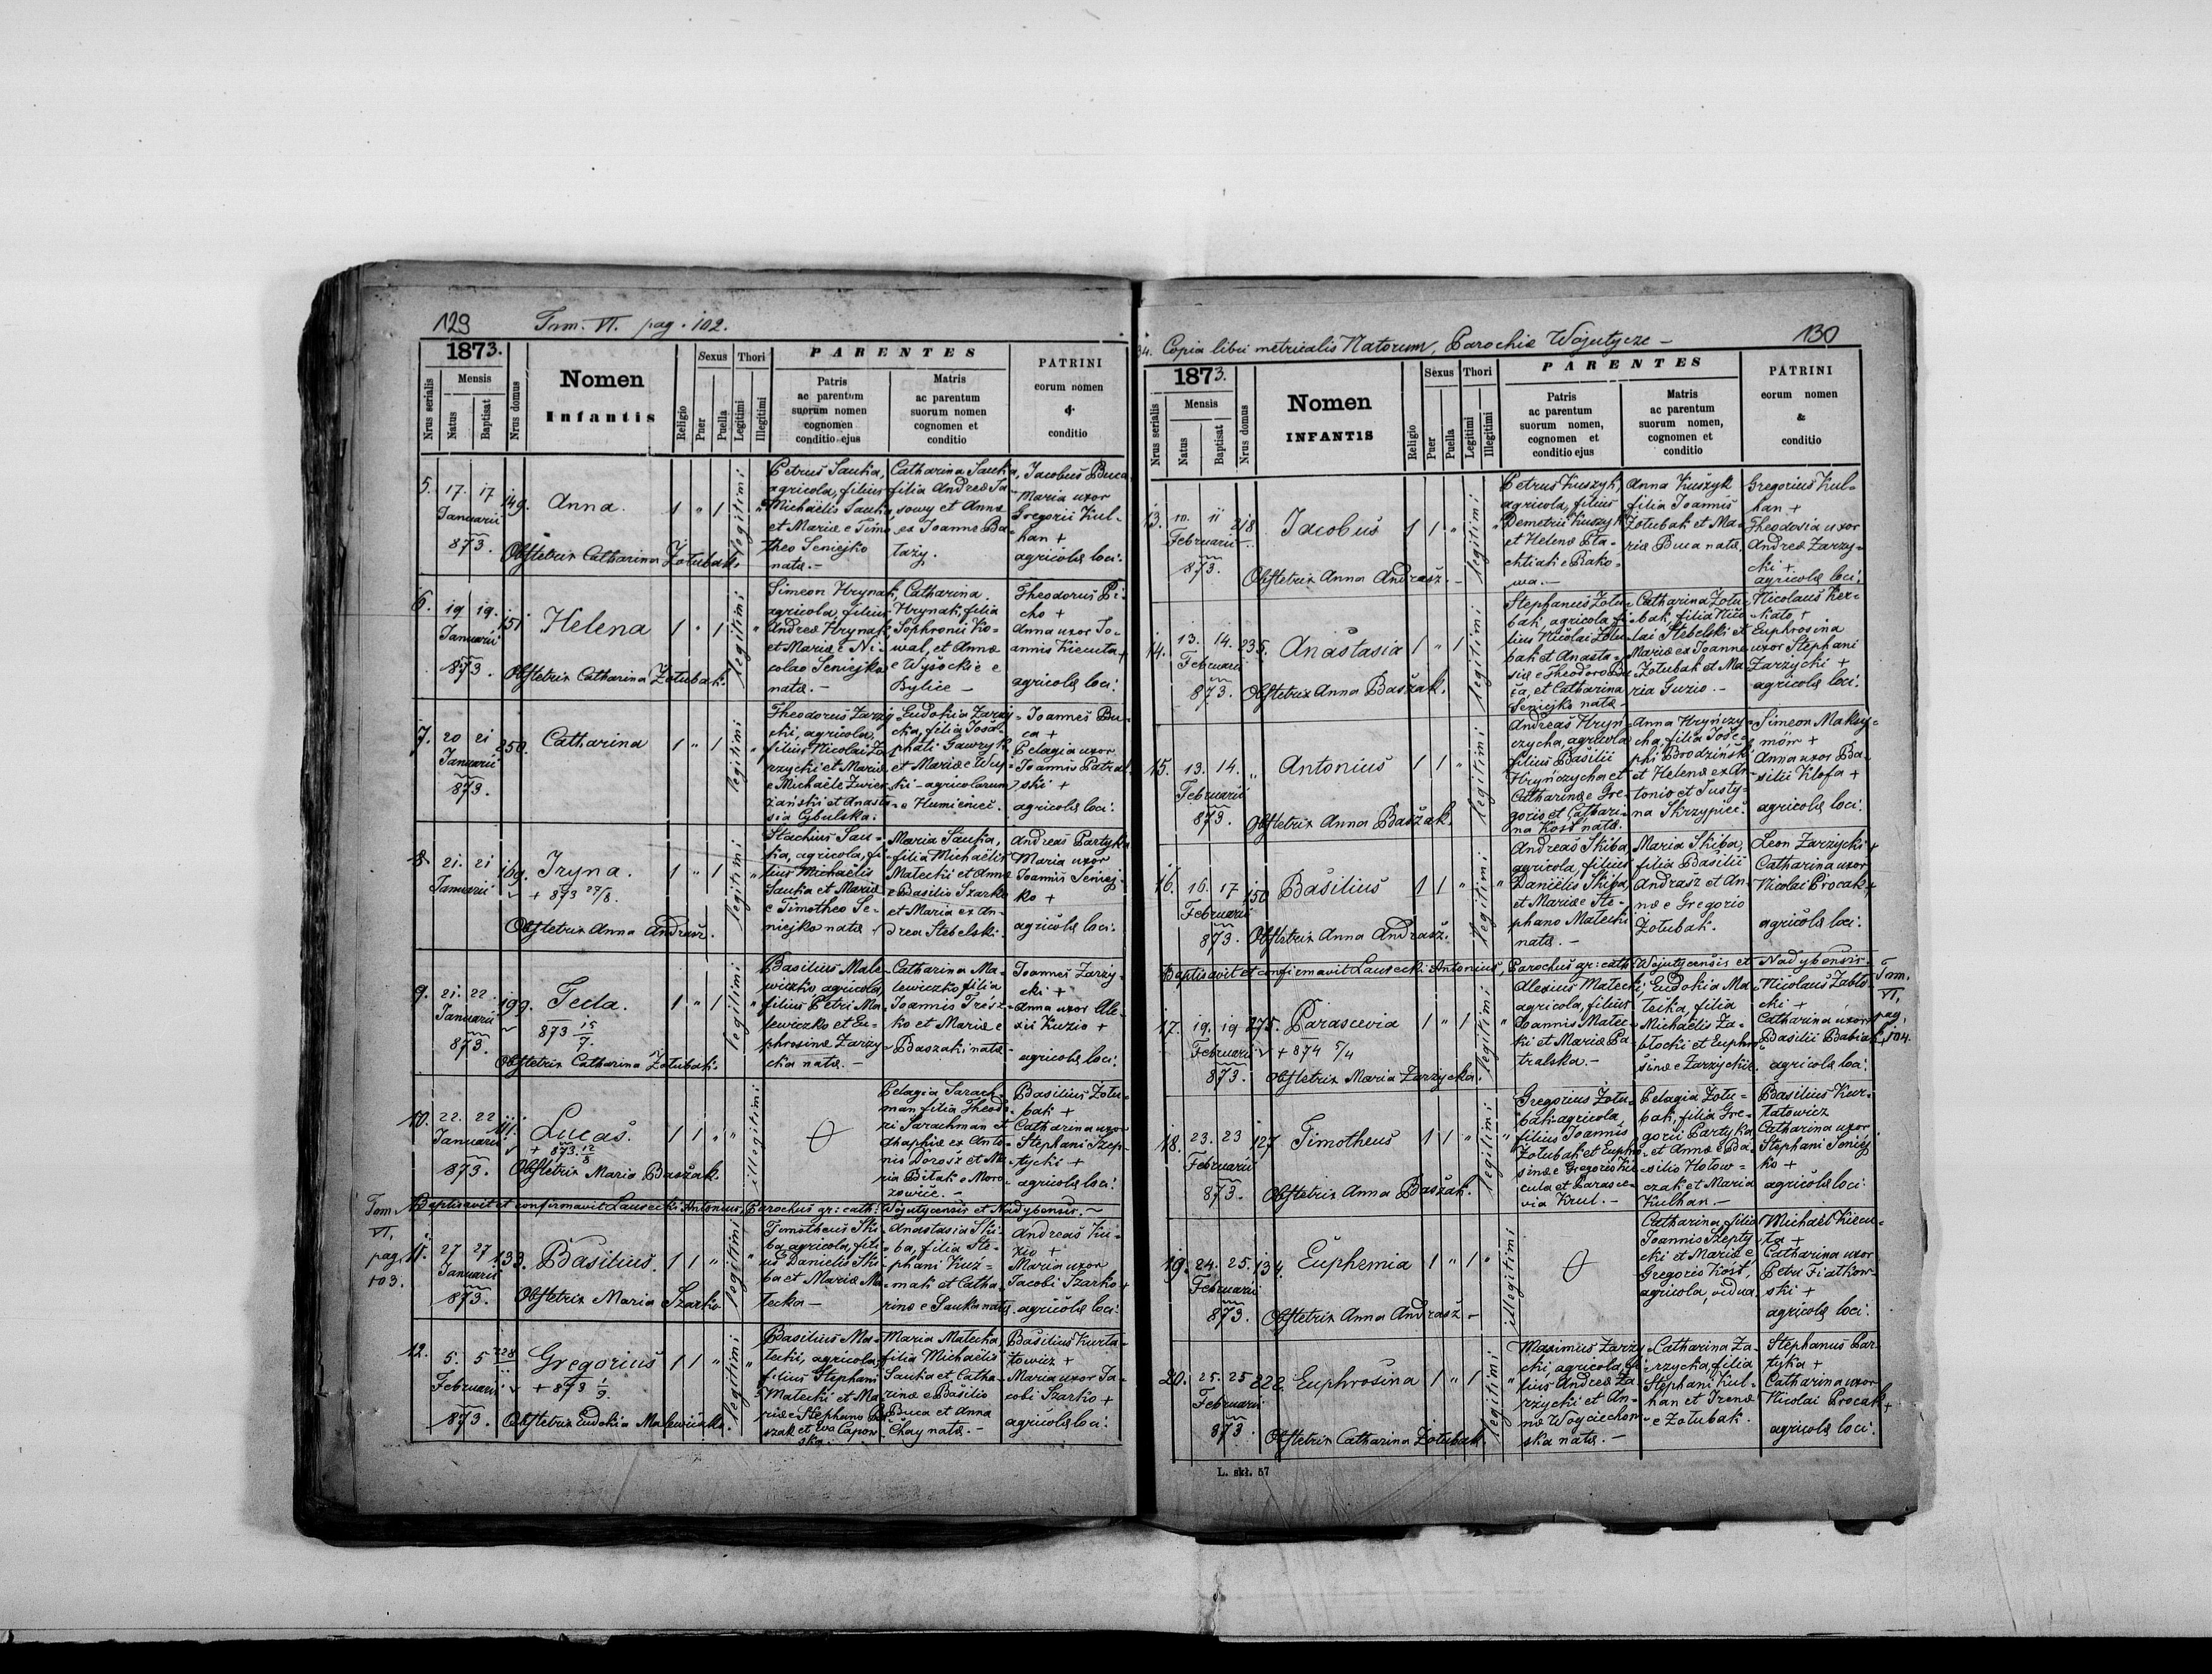 129
Tom. VI. pag. 102.
1873.
Nrus serialis
Mensis
Natus
Baptisat
Nrus domus
Nomen
Infantis
Religio
Sexus
Puer
Puella
Thori
Legitimi
Illegitimi
PARENTES
Patris
ac parentum
suorum nomen
cognomen
conditio ejus
Matris
ac parentum
suorum nomen
cognomen et
conditio
PATRINI
eorum nomen
&
conditio
5. 17. 17
Januarii
873.
149.
Anna.
1 " 1
legitimi
Obstetrix Catharina Żołubak.
Petrus Sauka,
agricola, filius
Michaëlis Sauka,
et Mariæ e Timo
theo Seniejko
natæ.-
Catharina Sauka,
filia Andreæ Sa-
sowy et Annæ
ex Joanne Ba-
łazy.
Jacobus Buca
Maria uxor
Gregorii Kul-
han +
agricolæ loci.
6. 19 19.
Januarii
873.
151
Helena
1 " 1
legitimi
Obstetrix Catharina Żołubak.
Simeon Hrynak,
agricola, filius
Andreæ Hrynak
et Mariæ e Ni-
colao Seniejko
natæ.-
Catharina
Hrynak, filia
Sophronii Ko-
wal, et Annæ
e Wysockie e
Bylice -
Theodorus Pi-
cho +
Anna uxor Jo-
annis Kicuła +
agricolæ loci.
7. 20 21
Januarii
873.
250.
Catharina
1 " 1
legitimi
Theodorus Zarzy
cki, agricola,
filius Nicolai Za
rzycki et Mariæ
e Michaële Zwier
żański et Anasta
sia Cybulska.
Eudokia Zarzy-
cka, filia Josa-
phati Gawryk
et Mariæ e Wuj-
ki - agricolarum
e Humieniec.
Joannes Bu-
ca +
Pelagia uxor
Joannis Patral-
ski +
agricolæ loci.
8. 21. 21
Januarii
169.
Iryna.
+ 873 29/8.
1 " 1
legitimi
Obstetrix Anna Andrasz.
Stachius Sau-
ka, agricola, fi-
lius Michaëlis
Sauka et Mariæ
e Timotheo Se-
niejko natæ
Maria Sauka,
filia Michaëlis
Małecki et Annæ
e Basilio Szarko
et Maria ex An-
drea Stebelski.
Andreas Partyka
Maria uxor
Joannis Seniej-
ko +
agricolæ loci.
9. 21. 22.
Januarii
873.
199.
Tecla.
873 15/7.
1 " 1
legitimi
Obstetrix Catharina Żołubak.
Basilius Male-
wiczko agricola,
filius Petri Ma-
lewiczko et Eu-
phrosinæ Zarzy-
cka natæ.-
Catharina Ma-
lewiczko filia
Joannis Tresz-
ko et Mariæ e
Baszak natæ
Joannes Zarzy-
cki +
Anna uxor Ale-
xii Kuzio +
agricolæ loci.
10. 22. 22
Januarii
873.
111.
Lucas.
+ 873. 12/8
1 1 " "
illegitimi
Obstetrix Maria Baszak.
Pelagia Sarach-
man filia Theodo-
ri Sarachman et
Ahaphiæ ex Anto-
nio Dorosz et Ma-
ria Bilak e Moro-
zowice.-
Basilius Żołu-
bak +
Catharina uxor
Stephani Szep-
tycki +
agricolæ loci.
Baptisavit et confirmavit Lausecki Antonius, Parochus gr: cath: Wojutycensis et Nadybensis.-
Tom.
VI.
pag.
103.
11. 27 27
Januarii
873.
133.
Basilius.
1 1 "
legitimi
Obstetrix Maria Szarko
Timotheus Ski-
ba, agricola, fili-
us Danielis Ski-
ba et Mariæ Ma-
łecka -
Anastasia Ski-
ba, filia Ste-
phani Kuź-
mak et Catha-
rinæ e Sauka natæ.
Andreas Ku-
zio +
Maria uxor
Jacobi Szarko +
agricolæ loci.
12. 5. 5
Februarii
873.
228
Gregorius
+ 873 1/9.
1 1 "
legitimi
Obstetrix Eudokia Malewiczko.
Basilius Ma-
łecki, agricola,
filius Stephani
Małecki et Ma-
riæ e Stephano Ba
szak et Eva Capow
ska.
Maria Małecka,
filia Michaëlis
Sauka et Catha-
rinæ e Basilio
Buca et Anna
Chay natæ.-
Basilius Kurta-
łowicz +
Maria uxor Ja-
cobi Szarko +
agricolæ loci.
34. Copia libri metricalis Natorum, Parochiæ Wojutycze -
130
1873.
Nrus serialis
Mensis
Natus
Baptisat
Nrus domus
Nomen
INFANTIS
Religio
Sexus
Puer
Puella
Thori
Legitimi
Illegitimi
PARENTES
Patris
ac parentum
suorum nomen,
cognomen et
conditio ejus
Matris
ac parentum
suorum nomen,
cognomen et
conditio
PATRINI
eorum nomen
&
conditio
13. 10. 11
Februarii
873.
218
Jacobus
1 1 "
legitimi
Obstetrix Anna Andrasz.-
Petrus Kuszyk,
agricola, filius
Demetrii Kuszyk
et Helenæ Sta-
chliak e Rako-
wa.-
Anna Kuszyk
filia Joannis
Żołubak et Ma-
riæ Buca natæ,
Gregorius Kul-
han +
Theodosia uxor
Andreæ Zarzy-
cki +
agricolæ loci.
14. 13. 14.
Februarii
873.
235.
Anastasia
1 " 1
legitimi
Obstetrix Anna Baszak.
Stephanus Żołu-
bak, agricola, fi-
lius Nicolai Żołu-
bak et Anasta-
siæ e Theodoro Bu
ca, et Catharina
Seniejko natæ-
Catharina Żołu-
bak, filia Nico-
lai Stebelski et
Mariæ ex Joanne
Żołubak et Ma-
ria Guzio.-
Nicolaus Kex-
Kało +
Euphrosina
uxor Stephani
Zarzycki +
agricolæ loci.
15. 13. 14.
Februarii
873.
"
Antonius
1 1 "
legitimi
Obstetrix Anna Baszak.
Andreas Hryń-
czycha, agricola
filius Basilii
Hryńczycha et
Catharinæ e Gre-
gorio et Cathari-
na Kost natæ.
Anna Hryńczy-
cha, filia Jose-
phi Brodziński
et Helenæ ex An-
tonio et Justy-
na Skrzypiec.
Simeon Maksy-
mów +
Anna uxor Ba-
silii Klofa +
agricolæ loci.
16. 16. 17
Februarii
873.
150
Basilius
1 1 "
legitimi
Obstetrix Anna Andrasz.
Andreas Skiba,
agricola, filius
Daniëlis Skiba,
et Mariæ e Ste-
phano Małecki
natæ.-
Maria Skiba,
filia Basilii
Andrasz et An-
næ e Gregorio
Żołubak.
Leon Zarzycki +
Catharina uxor
Nicolai Procak +
agricolæ loci.
Baptisavit et confirmavit Lausecki Antonius, Parochus gr: cath: Wojutycensis et Nadybensis.-
Tom.
VI.
pag.
104.
17. 19. 19
Februarii
873.
275.
Parascevia
+ 874 5/4
1 " 1
legitimi
Obstetrix Maria Zarzycka.
Alexius Małecki,
agricola, filius
Joannis Małec-
ki et Mariæ Pa
tralska.-
Eudokia Ma-
łecka, filia
Michaëlis Za-
błocki et Euphro-
sinæ e Zarzyckie.
Nicolaus Zabło-
cki +
Catharina uxor
Basilii Babiak +
agricolæ loci.
18. 23. 23
Februarii
873.
127.
Timotheus
1 1 "
legitimi
Obstetrix Anna Baszak.
Gregorius Żołu-
bak agricola
filius Joannis
Żołubak et Euphro-
sinæ e Gregorio Ki-
cula et Parasce-
via Krul.-
Pelagia Żołu-
bak, filia Gre-
gorii Partyka
et Annæ e Ba-
silio Hołow-
czak et Maria
Kulhan -
Basilius Kur-
tałowicz
Catharina uxor
Stephani Seniej
ko +
agricolæ loci.
19. 24. 25.
Februarii
873.
134.
Euphemia
1 " 1 "
illegitimi
Obstetrix Anna Andrasz -
Catharina, filia
Joannis Szepty
cki et Mariæ e
Gregorio Kost,
agricola, vidua.
Michaël Kicu-
ła +
Catharina uxor
Petri Fiałkow-
ski +
agricolæ loci.
20. 25. 25
Februarii
873.
222.
Euphrosina
1 " 1
legitimi
Obstetrix Catharina Żołubak.
Maximus Zarzy
cki, agricola, fi-
lius Andreæ Za
rzycki et An-
næ Woyciechow
ska natæ.-
Catharina Za-
rzycka, filia
Stephani Kul-
han et Irenæ
e Żołubak.
Stephanus Par
tyka +
Catharina uxor
Nicolai Procak +
agricolæ loci.
L. skł. 57